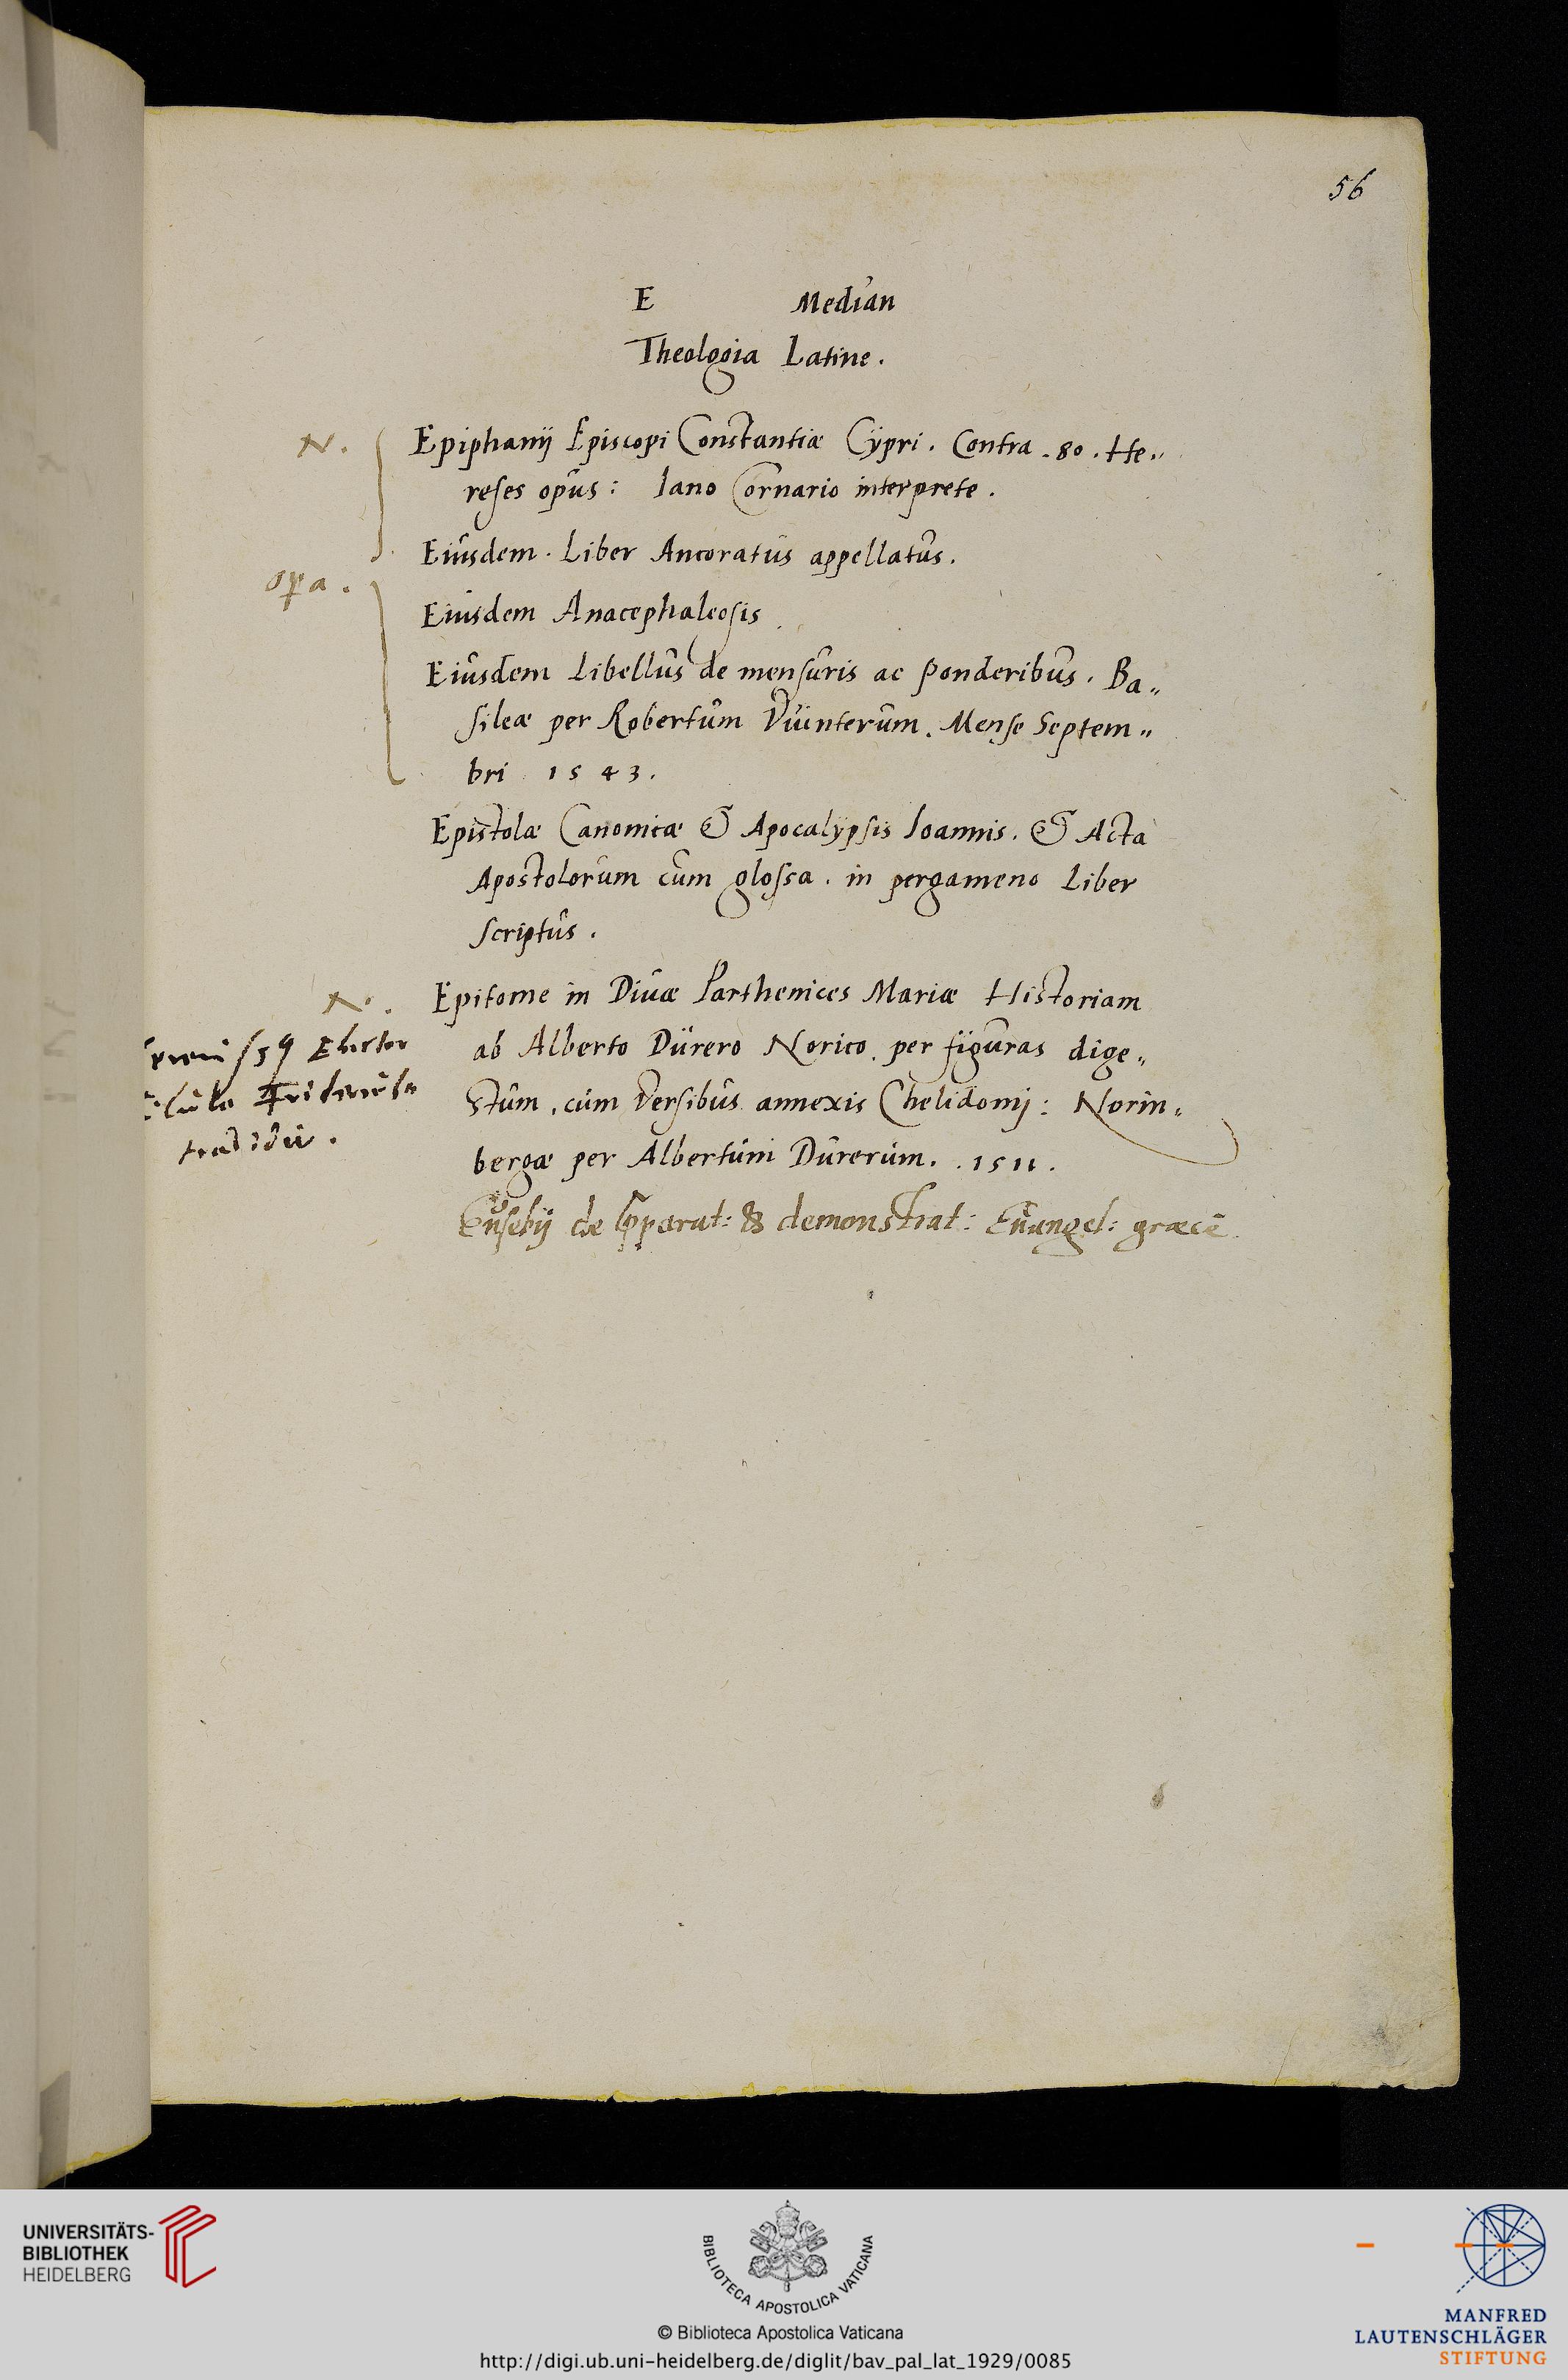 56
E Median
Theologia Latine.
N.
Epiphanij Episcopi Constantiæ Cÿpri. Contra .80. He„
reses opus: Iano Cornario interprete.
Eiusdem. Liber Ancoratus appellatus.
opa.
Eiusdem Anacephaleosis
Eiusdem Libellus de mensuris ac Ponderibus. Ba„
sileæ per Robertum Vuinterum. Mense Septem„
bri 1543.
Epistolæ Canonicæ & Apocalÿpsis Ioannis. & Acta
Apostolorum cum glossa. in pergameno Liber
scriptus.
N.
Epitome in Diuæ Parthenices Mariæ Historiam
ab Alberto Dürero Norico. per figuras dige„
stum. cum versibus annexis Chelidonij: Norin„
bergæ per Albertum Durerum. .1511.
Elector
Friderico
tradidi.
Eusebij de ppararat: & demonstrat: Euangel: græcè
UNIVERSITÄTS-
BIBLIOTHEK
HEIDELBERG
BIBLIOTECA APOSTOLICA VATICANA
© Biblioteca Apostolica Vaticana
http://digi.ub.uni-heidelberg.de/diglit/bav_pal_lat_1929/0085
MANFRED
LAUTENSCHLÄGER
STIFTUNG